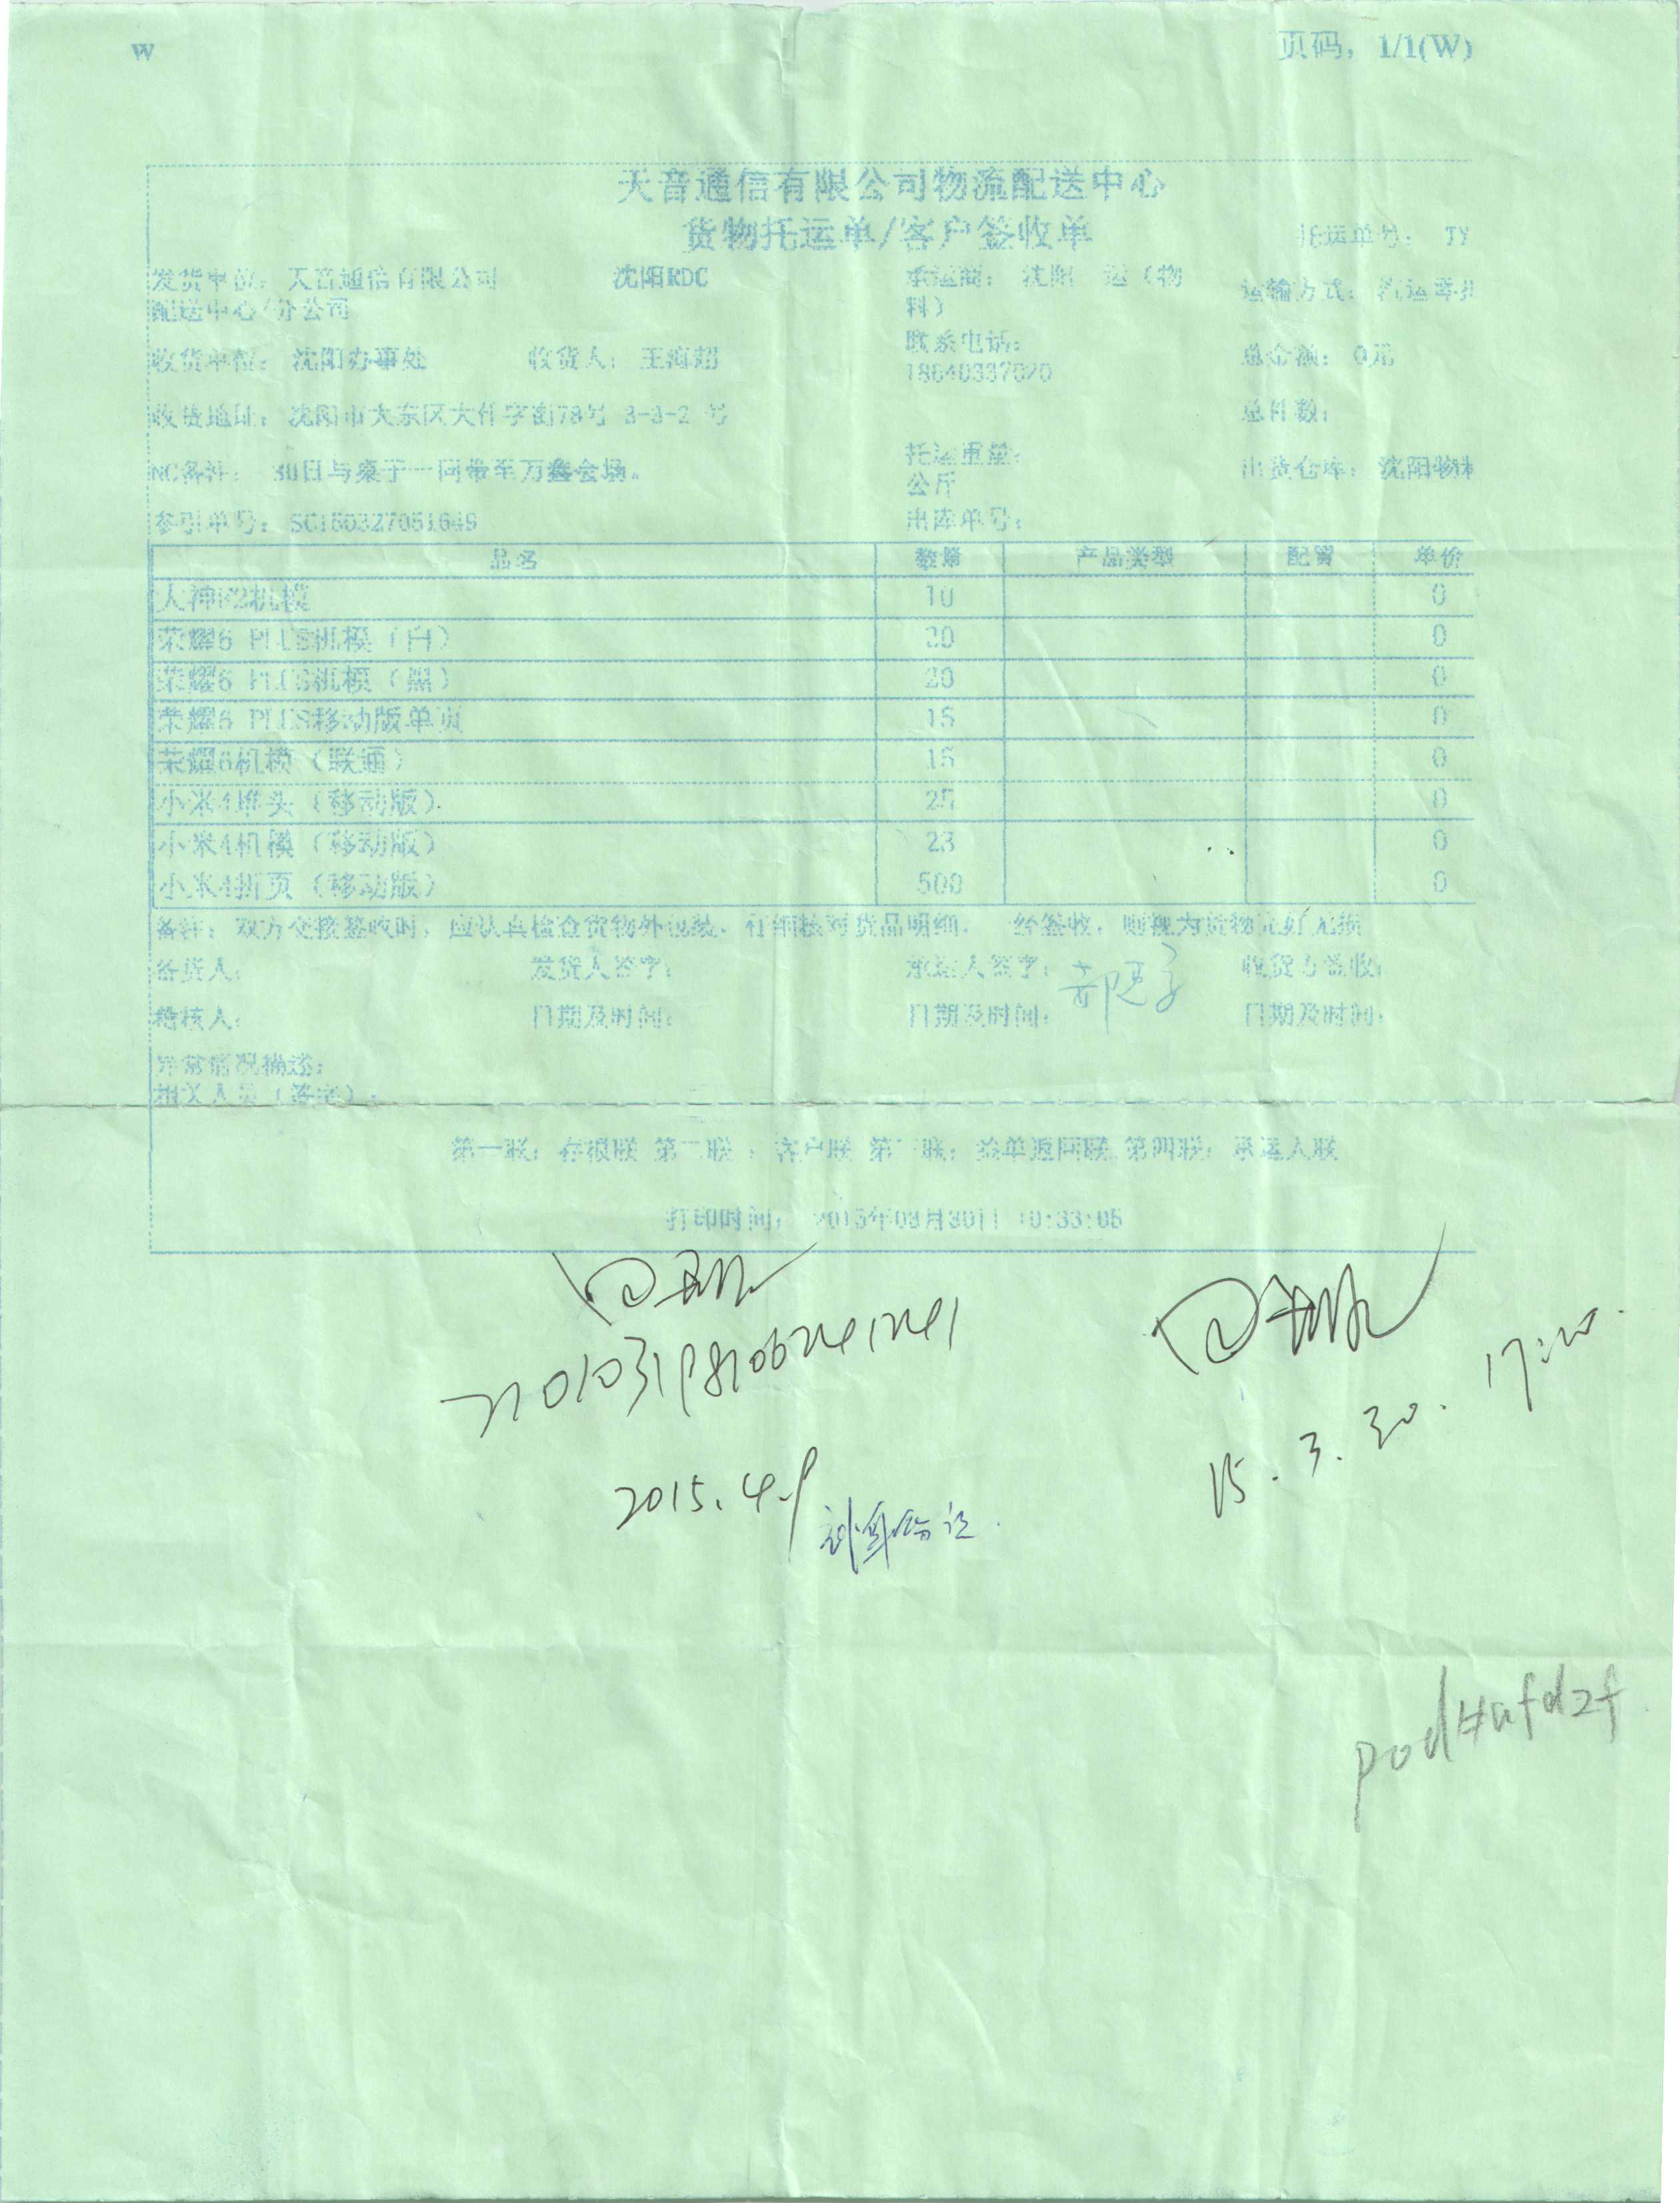 W
页码，1/1(W)
天音通信有限公司物流配送中心
货物托运单/客户签收单
托运单号： TY
发货单位：天音通信有限公司 沈阳RDC
配送中心/分公司
承运商：沈阳 运（物
料）
运输方式：
收货单位：沈阳办事处 收货人：王海超
联系电话：
18640337020
总金额：0元
收货地址：沈阳市大东区大什字街78号 3-3-2 号
总件数：
NC备注： 30日与桌子一同带至万鑫会场。
托运重量：
公斤
出货仓库：沈阳物
参引单号：SC150327051649
出库单号：
品名 数量 产品类型 配置 单价
大神F2机模 10 0
荣耀6 PLUS机模（白） 20 0
荣耀6 PLUS机模（黑） 20 0
荣耀6 PLUS移动版单页 15 0
荣耀6机模（联通） 15 0
小米4堆头（移动版） 25 0
小米4机模（移动版） 23 0
小米4折页（移动版） 500 0
备注：双方交接签收时，应认真检查货物外包装，仔细核对货品明细， 经签收，则视为货物完好无损
备货人： 发货人签字： 承运人签字： 收货方签收：
稽核人： 日期及时间： 日期及时间： 日期及时间：
异常情况描述：
相关人员（签字）：
第一联：存根联 第二联：客户联 第三联：签单返回联 第四联：承运人联
打印时间： 2015年03月30日 10:33:05
2015.4.9
15.3.30. 17:20.
pod#afd2f